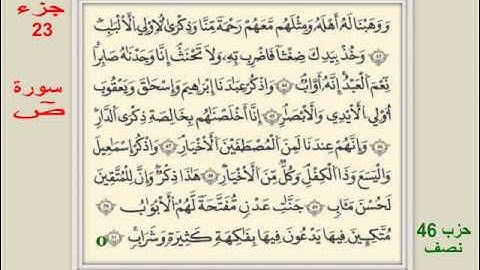 جزء
23
سورة
ص
وَوَهَبْنَا لَهُ أَهْلَهُ وَمِثْلَهُم مَّعَهُمْ رَحْمَةً مِّنَّا وَذِكْرَىٰ لِأُوْلِي الْأَلْبَابِ
﴿٤٣﴾ وَخُذْ بِيَدِكَ ضِغْثًا فَاضْرِب بِّهِ وَلَا تَحْنَثْ إِنَّا وَجَدْنَاهُ صَابِرًا
نِّعْمَ الْعَبْدُ إِنَّهُ أَوَّابٌ ﴿٤٤﴾ وَاذْكُرْ عِبَادَنَا إِبْرَاهِيمَ وَإِسْحَاقَ وَيَعْقُوبَ
أُوْلِي الْأَيْدِي وَالْأَبْصَارِ ﴿٤٥﴾ إِنَّا أَخْلَصْنَاهُم بِخَالِصَةٍ ذِكْرَى الدَّارِ
﴿٤٦﴾ وَإِنَّهُمْ عِندَنَا لَمِنَ الْمُصْطَفَيْنَ الْأَخْيَارِ ﴿٤٧﴾ وَاذْكُرْ إِسْمَاعِيلَ
وَالْيَسَعَ وَذَا الْكِفْلِ وَكُلٌّ مِّنَ الْأَخْيَارِ ﴿٤٨﴾ هَٰذَا ذِكْرٌ وَإِنَّ لِلْمُتَّقِينَ
لَحُسْنَ مَآبٍ ﴿٤٩﴾ جَنَّاتِ عَدْنٍ مُّفَتَّحَةً لَّهُمُ الْأَبْوَابُ ﴿٥٠﴾
مُتَّكِئِينَ فِيهَا يَدْعُونَ فِيهَا بِفَاكِهَةٍ كَثِيرَةٍ وَشَرَابٍ ﴿٥١﴾ ٥
حزب 46
نصف